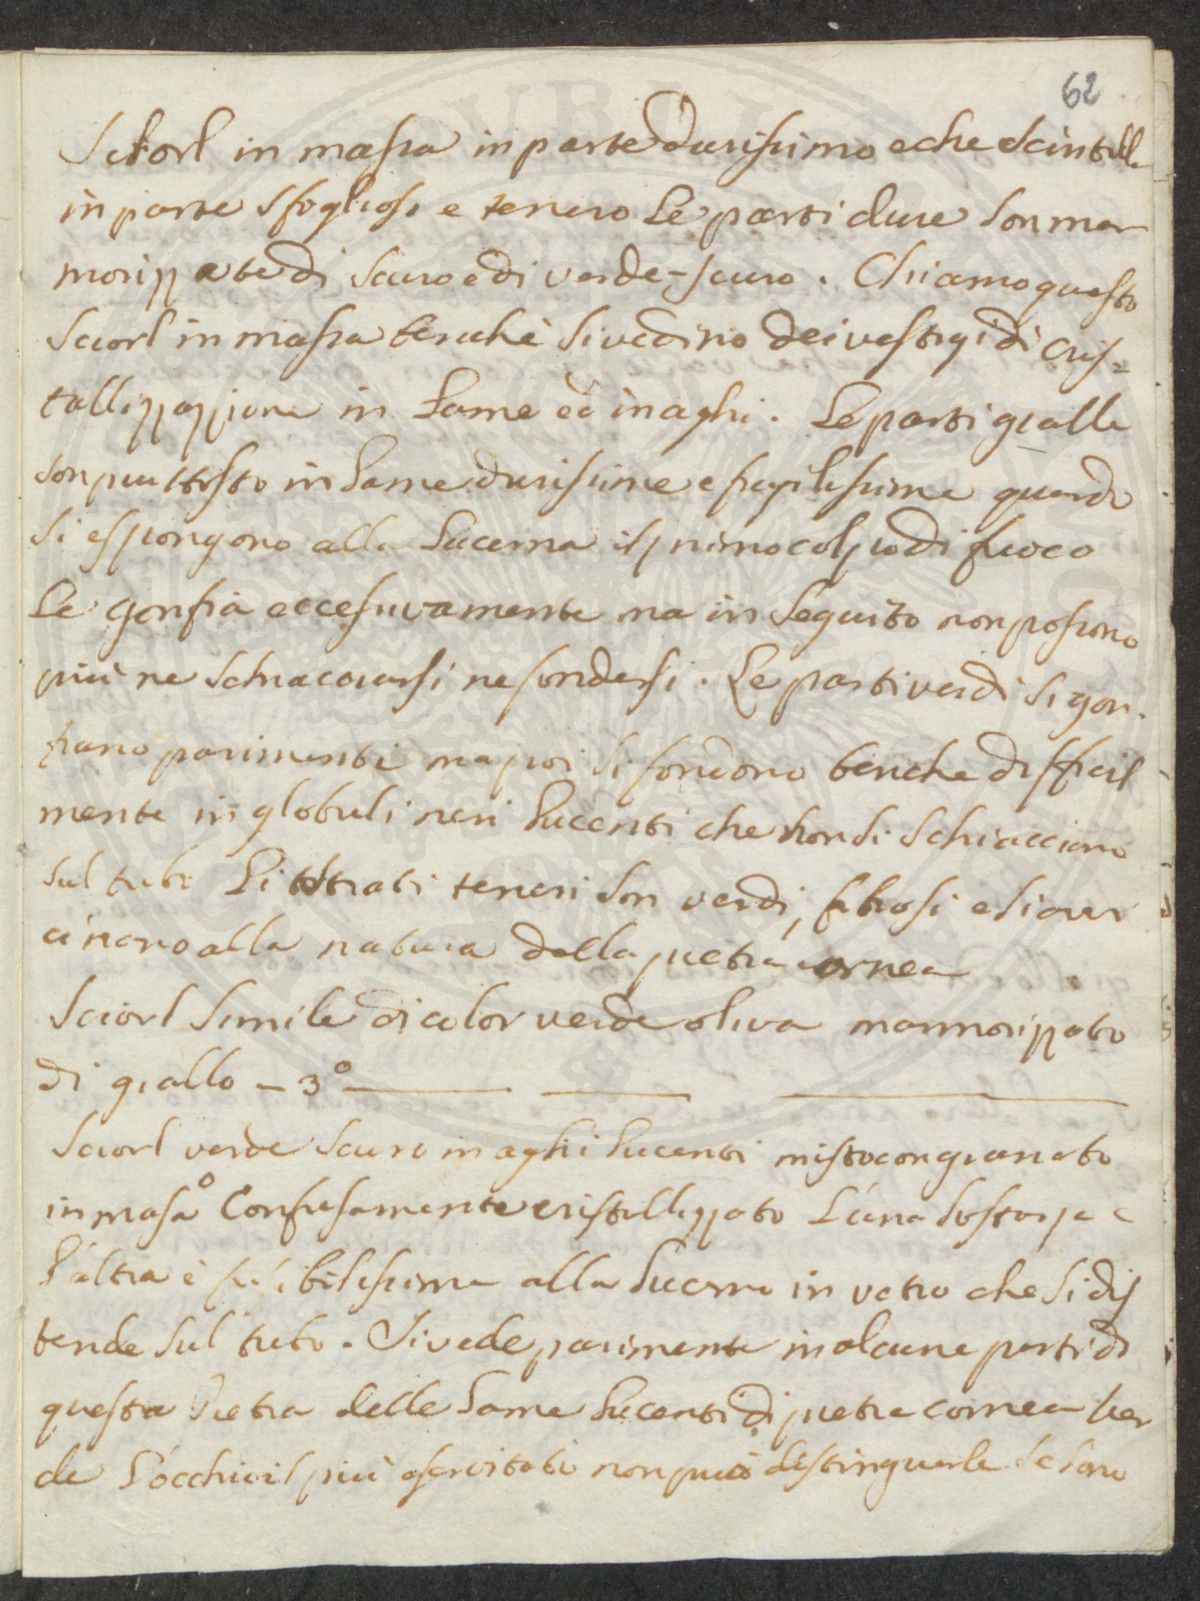 62
Sciorl in massa in parte durissimo e che scintilla
in parte sfoglioso e tenero Le parti dure son mar
morizzate di scuro e di verde-scuro. Chiamo questo
Sciorl in massa benchè si vedino dei vestigi di cris=
tallizzazzione in lame ed in aghi. Le parti gialle
son piuttosto in lame durissime e fragilissime quando
si espongono alla lucerna il primo colpo di fuoco
Le gonfia eccessivamente ma in seguito non possono
più ne schiacciarsi ne fondersi. Le parti verdi si gon-
fiano parimenti ma poi si fondono benche difficil
mente in globuli neri lucenti che non si schiacciano
sul tubo Li strati teneri son verdi, fibrosi e si avvi
cinano alla natura della pietra cornea
Sciorl simile di color verde oliva marmorizzato
di giallo - 3°
Sciorl verde scuro in aghi lucenti misto con granato
in massa Confusamente cristallizzato L'una sostanza e
l'altra è fusibilissima alla lucerna in vetro che si dis
tende sul tubo. Si vede parimente in alcune parti di
questa Pietra delle lame lucenti di pietra cornea ver
de L'occhio il più esercitato non può distinguerle se sono